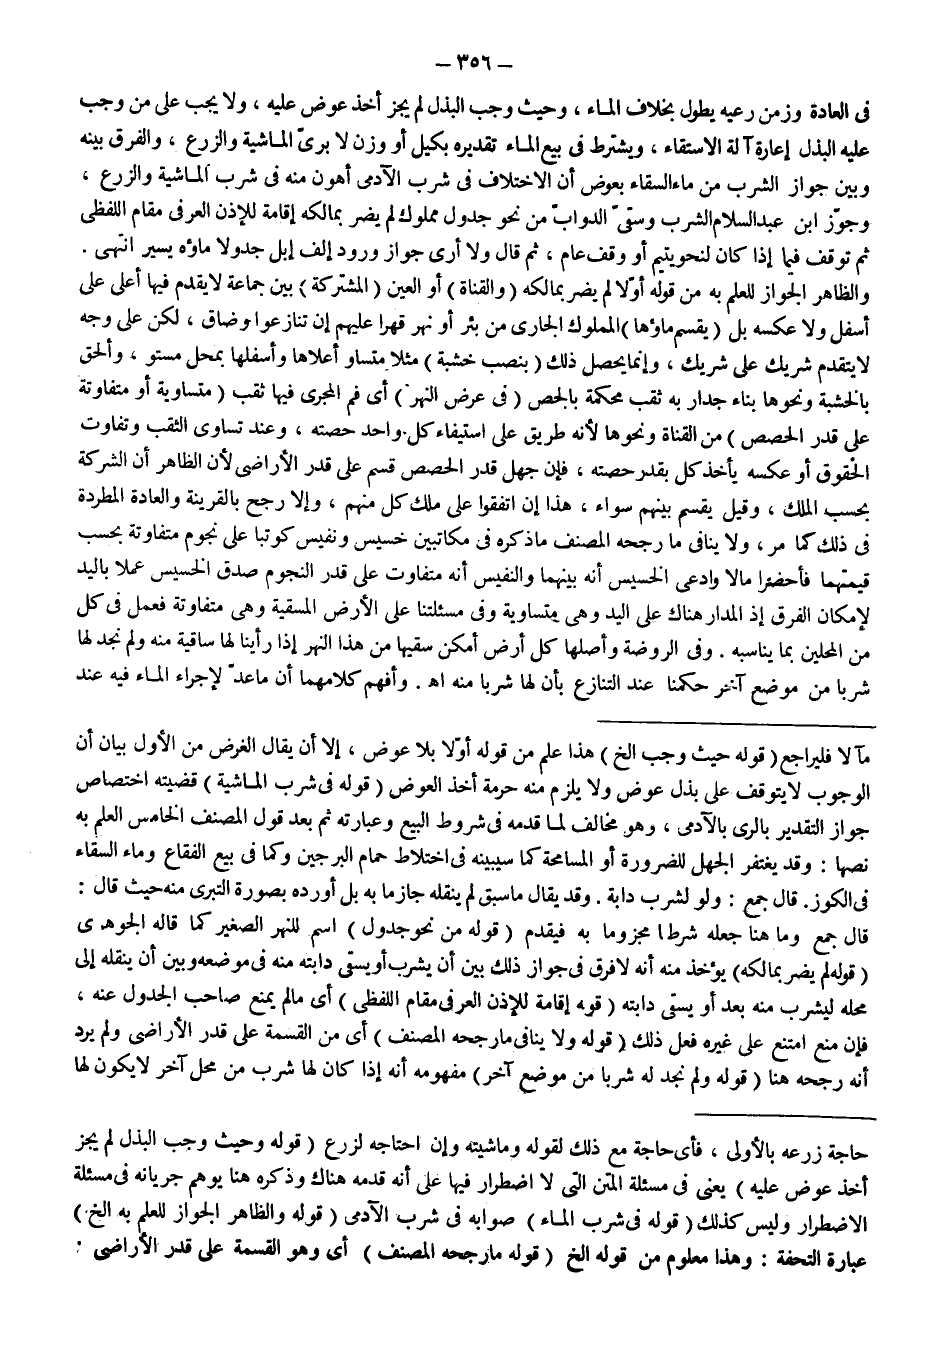 – ٣٥٦ –
فى العادة وزمن رعيه يطول بخلاف الماء ، وحيث وجب البذل لم يجز أخذ عوض عليه ، ولا يجب على من وجب
عليه البذل إعارة آلة الاستقاء ، ويشترط فى بيع الماء تقديره بكيل أو وزن لا برىّ الماشية والزرع ، والفرق بينه
وبين جواز الشرب من ماء السقاء بعوض أن الاختلاف فى شرب الآدمى أهون منه فى شرب الماشية والزرع ،
وجوّز ابن عبدالسلام الشرب وسقىَ الدوابّ من نحو جدول مملوك لم يضر بمالكه إقامة للإذن العرفى مقام اللفظى
ثم توقف فيما إذا كان لنحو يتيم أو وقف عام ، ثم قال ولا أرى جواز ورود إلف إبل جدولا ماؤه يسير انتهى .
والظاهر الجواز للعلم به من قوله أوّلا لم يضر بمالكه ( والقناة ) أو العين ( المشتركة ) بين جماعة لا يقدم فيها أعلى على
أسفل ولا عكسه بل ( يقسم ماؤها ) المملوك الجارى من بئر أو نهر قهرا عليهم إن تنازعوا وضاق ، لكن على وجه
لا يتقدم شريك على شريك ، وإنما يحصل ذلك ( بنصب خشبة ) مثلا متساو أعلاها وأسفلها بمحل مستو ، وألحق
بالخشبة ونحوها بناء جدار به ثقب محكمة بالجص ( فى عرض النهر ) أى فم المجرى فيها ثقب ( متساوية أو متفاوتة
على قدر الحصص ) من القناة ونحوها لأنه طريق على استيفاء كل واحد حصته ، وعند تساوى الثقب وتفاوت
الحقوق أو عكسه يأخذ كل بقدر حصته ، فإن جهل قدر الحصص قسم على قدر الأراضى لأن الظاهر أن الشركة
بحسب الملك ، وقيل يقسم بينهم سواء ، هذا إن اتفقوا على ملك كل منهم ، وإلا رجح بالقرينة والعادة المطردة
فى ذلك كما مر ، ولا ينافى ما رجحه المصنف ماذكره فى مكاتبين خسيس ونفيس كوتبا على نجوم متفاوتة بحسب
قيمتهما فأحضرا مالا وادعى الخسيس أنه بينهما والنفيس أنه متفاوت على قدر النجوم صدق الخسيس عملا باليد
لإمكان الفرق إذ المدار هناك على اليد وهى متساوية وفى مسئلتنا على الأرض المسقية وهى متفاوتة فعمل فى كل
من المحلين بما يناسبه . وفى الروضة وأصلها كل أرض أمكن سقيها من هذا النهر إذا رأينا لها ساقية منه ولم نجد لها
شربا من موضع آخر حكمنا عند التنازع بأن لها شربا منه اهـ . وأفهم كلامهما أن ماعدّ لإجراء الماء فيه عند
مآلا فليراجع ( قوله حيث وجب الخ ) هذا علم من قوله أوّلا بلا عوض ، إلا أن يقال الغرض من الأول بيان أن
الوجوب لا يتوقف على بذل عوض ولا يلزم منه حرمة أخذ العوض ( قوله فى شرب الماشية ) قضيته اختصاص
جواز التقدير بالرى بالآدمى ، وهو مخالف لما قدمه فى شروط البيع وعبارته ثم بعد قول المصنف الخامس العلم به
نصها : وقد يغتفر الجهل للضرورة أو المسامحة كما سيبينه فى اختلاط حمام البرجين وكما فى بيع الفقاع وماء السقاء
فى الكوز . قال جمع : ولو لشرب دابة . وقد يقال ماسبق لم ينقله جازما به بل أورده بصورة التبرى منه حيث قال :
قال جمع وما هنا جعله شرطا مجزوما به فيقدم ( قوله من نحو جدول ) اسم للنهر الصغير كما قاله الجوهرى
( قوله لم يضر بمالكه ) يؤخذ منه أنه لا فرق فى جواز ذلك بين أن يشرب أو يسقى دابته منه فى موضعه وبين أن ينقله إلى
محله ليشرب منه بعد أو يسقى دابته ( قوله إقامة للإذن العرفى مقام اللفظى ) أى مالم يمنع صاحب الجدول عنه ،
فإن منع امتنع على غيره فعل ذلك ( قوله ولا ينافى مارجحه المصنف ) أى من القسمة على قدر الأراضى ولم يرد
أنه رجحه هنا ( قوله ولم نجد له شربا من موضع آخر ) مفهومه أنه إذا كان لها شرب من محل آخر لا يكون لها
حاجة زرعه بالأولى ، فأى حاجة مع ذلك لقوله وماشيته وإن احتاجه لزرع ( قوله وحيث وجب البذل لم يجز
أخذ عوض عليه ) يعنى فى مسئلة المتن التى لا اضطرار فيها على أنه قدمه هناك وذكره هنا يوهم جريانه فى مسئلة
الاضطرار وليس كذلك ( قوله فى شرب الماء ) صوابه فى شرب الآدمى ( قوله والظاهر الجواز للعلم به الخ )
عبارة التحفة : وهذا معلوم من قوله الخ ( قوله مارجحه المصنف ) أى وهو القسمة على قدر الأراضى :